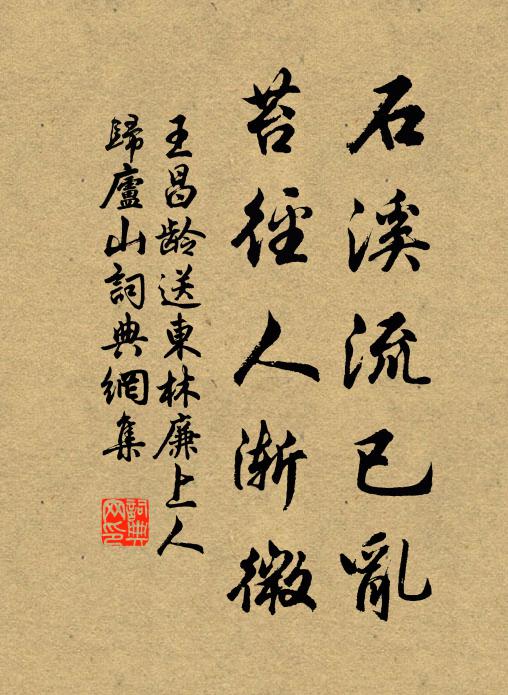 石溪流已亂
苔徑人漸微
王昌齡送東林廉上人
歸廬山詞典網集
詞典
网印